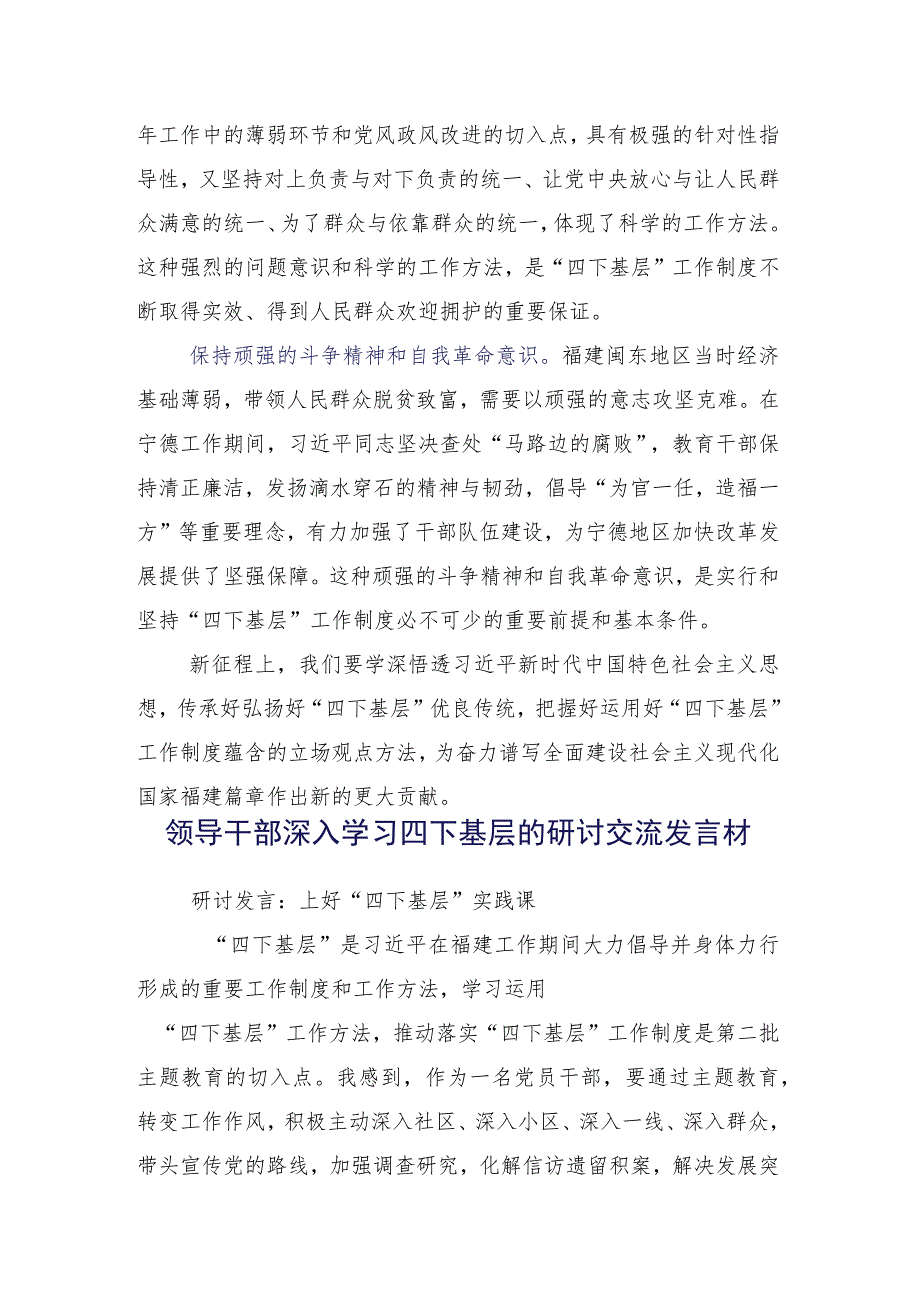 年工作中的薄弱环节和党风政风改进的切入点，具有极强的针对性指
导性，又坚持对上负责与对下负责的统一、让党中央放心与让人民群
众满意的统一、为了群众与依靠群众的统一，体现了科学的工作方法。
这种强烈的问题意识和科学的工作方法，是“四下基层”工作制度不
断取得实效、得到人民群众欢迎拥护的重要保证。
保持顽强的斗争精神和自我革命意识。福建闽东地区当时经济
基础薄弱，带领人民群众脱贫致富，需要以顽强的意志攻坚克难。在
宁德工作期间，习近平同志坚决查处“马路边的腐败”，教育干部保
持清正廉洁，发扬滴水穿石的精神与韧劲，倡导“为官一任，造福一
方”等重要理念，有力加强了干部队伍建设，为宁德地区加快改革发
展提供了坚强保障。这种顽强的斗争精神和自我革命意识，是实行和
坚持“四下基层”工作制度必不可少的重要前提和基本条件。
新征程上，我们要学深悟透习近平新时代中国特色社会主义思
想，传承好弘扬好“四下基层”优良传统，把握好运用好“四下基层”
工作制度蕴含的立场观点方法，为奋力谱写全面建设社会主义现代化
国家福建篇章作出新的更大贡献。
领导干部深入学习四下基层的研讨交流发言材
研讨发言：上好“四下基层”实践课
“四下基层”是习近平在福建工作期间大力倡导并身体力行
形成的重要工作制度和工作方法，学习运用
“四下基层”工作方法，推动落实“四下基层”工作制度是第二批
主题教育的切入点。我感到，作为一名党员干部，要通过主题教育，
转变工作作风，积极主动深入社区、深入小区、深入一线、深入群众，
带头宣传党的路线，加强调查研究，化解信访遗留积案，解决发展突